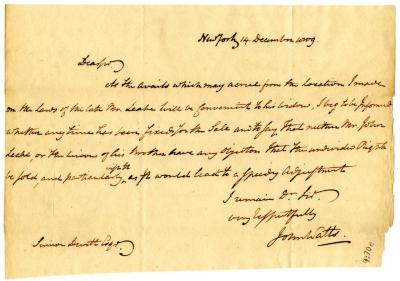 New York 14 December 1809.
Dear Sir
As the avails which may acrue from the Location I made
on the Lands of the late Mr. Leake will be Convenient to his widow, I beg to be informed
whether any time has been fixed for the Sale and to say that neither Mr John
Leake, or the widow of his Brother have any objection that the undivided Right
be sold, and particularly as it would lead to a speedy Adjustment
I remain Dr. Sir.
very respectfully
John Watts.
Simeon Dewitt Esqr.
9270c